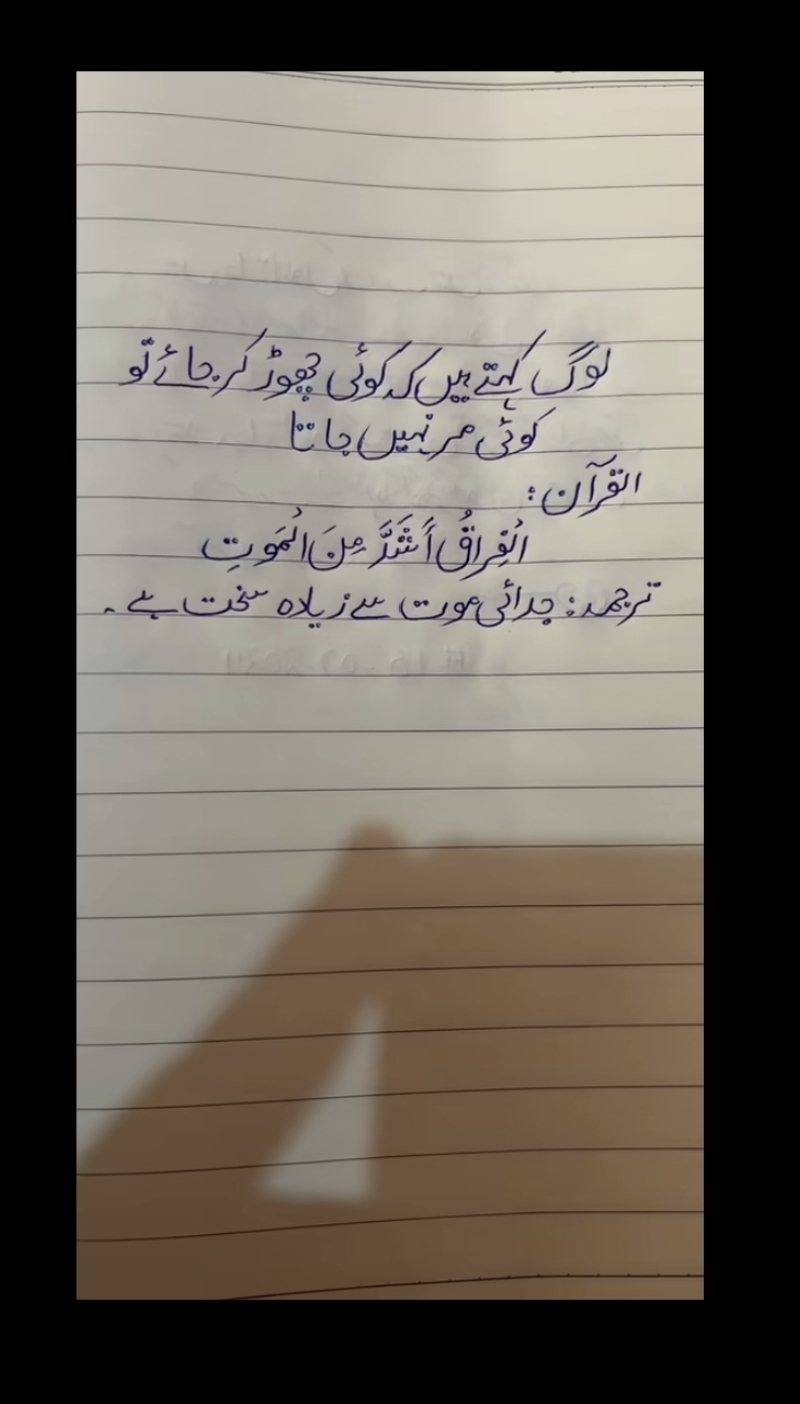 لوگ کہتے ہیں کہ کوئی چھوڑ کر جائے تو
کوئی مر نہیں جاتا
القرآن:
الْفِرَاقُ أَشَدَّ مِنَ الْمَوتِ
ترجمہ: جدائی موت سے زیادہ سخت ہے۔